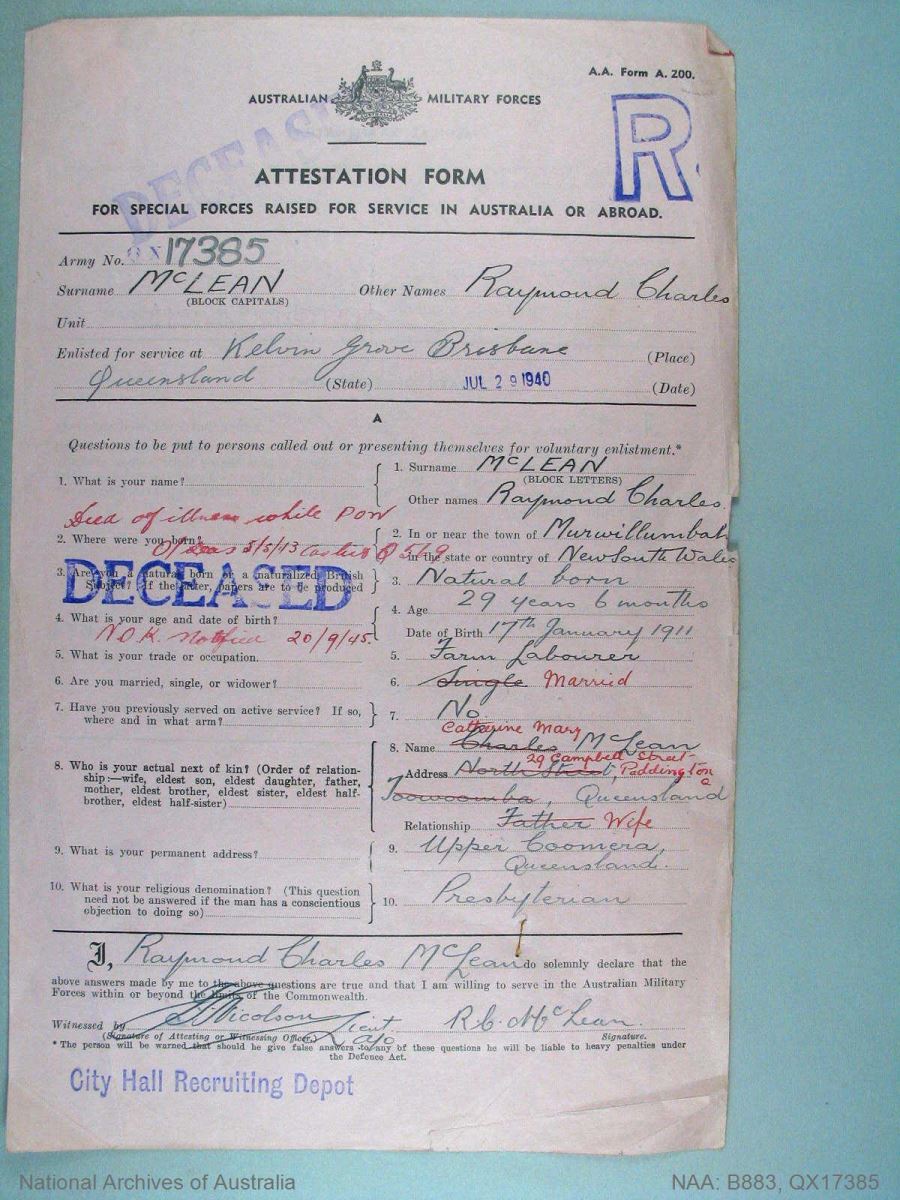 A.A. Form A. 200.
AUSTRALIAN MILITARY FORCES
AUSTRALIA
R
DECEASED
ATTESTATION FORM
FOR SPECIAL FORCES RAISED FOR SERVICE IN AUSTRALIA OR ABROAD.
Army No. QX17385
Surname McLEAN Other Names Raymond Charles
(BLOCK CAPITALS)
Unit
Enlisted for service at Kelvin Grove Brisbane (Place)
Queensland (State) JUL 29 1940 (Date)
A
Questions to be put to persons called out or presenting themselves for voluntary enlistment.*
1. What is your name?
1. Surname McLEAN
(BLOCK LETTERS)
Other names Raymond Charles
Died of illness while POW
2. Where were you born?
2. In or near the town of Murwillumbah
in the state or country of New South Wales
O/Seas 5/5/43
3. Are you a natural born or a naturalized British
Subject? If the latter, papers are to be produced
3. Natural born
DECEASED
4. What is your age and date of birth?
4. Age 29 years 6 months
Date of Birth 17th January 1911
N.O.K. Notified 20/9/45
5. What is your trade or occupation.
5. Farm Labourer
6. Are you married, single, or widower?
6. Single Married
7. Have you previously served on active service? If so,
where and in what arm?
7. No
8. Who is your actual next of kin? (Order of relation-
ship:—wife, eldest son, eldest daughter, father,
mother, eldest brother, eldest sister, eldest half-
brother, eldest half-sister)
Catherine Mary
8. Name Charles McLean
29 Campbell Street
Address North Street, Paddington
Toowoomba, Queensland
Relationship Father Wife
9. What is your permanent address?
9. Upper Coomera,
Queensland.
10. What is your religious denomination? (This question
need not be answered if the man has a conscientious
objection to doing so)
10. Presbyterian
I, Raymond Charles McLean do solemnly declare that the
above answers made by me to the above questions are true and that I am willing to serve in the Australian Military
Forces within or beyond the limits of the Commonwealth.
Witnessed by Nicolson Lieut R.C. McLean.
(Signature of Attesting or Witnessing Officer.) Signature.
* The person will be warned that should he give false answers to any of these questions he will be liable to heavy penalties under
the Defence Act.
City Hall Recruiting Depot
National Archives of Australia
NAA: B883, QX17385